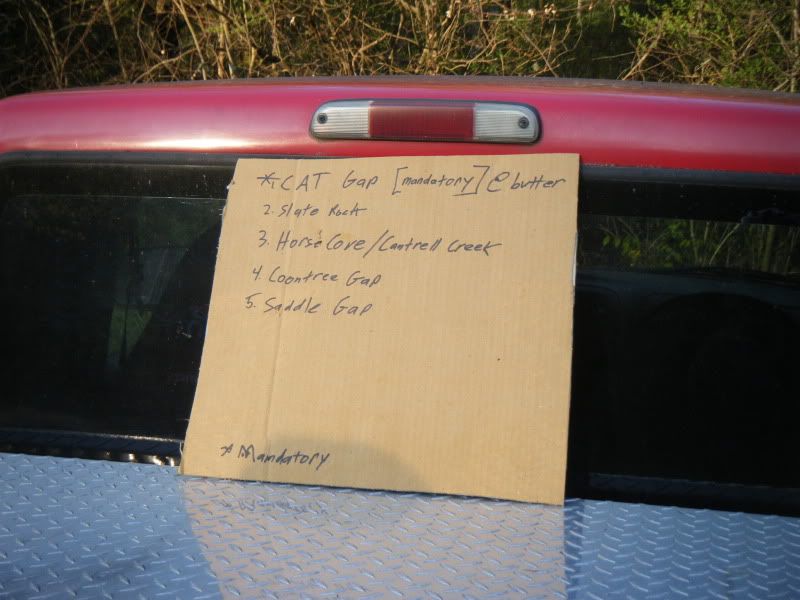 *1. CAT Gap [mandatory] @ butter
2. Slate Rock
3. Horse Cove/Cantrell Creek
4. Coontree Gap
5. Saddle Gap
* Mandatory